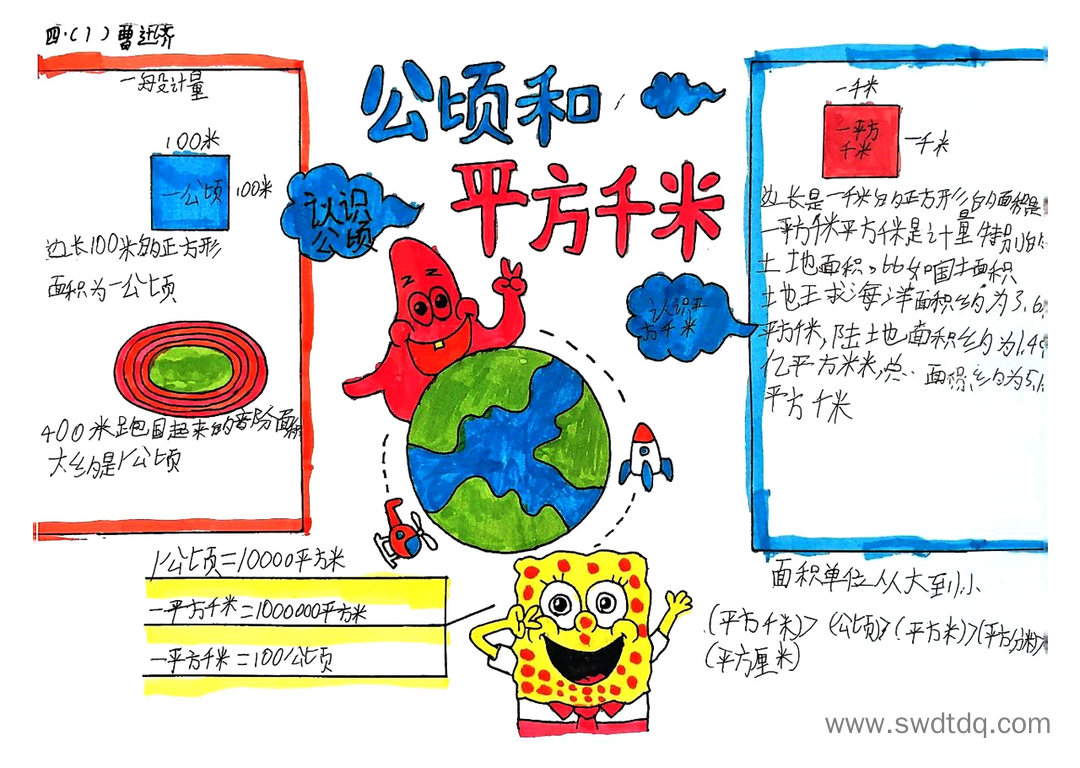 四.(1)曹
一每设计量
100米
一公顷
100米
边长100米的正方形
面积为一公顷
400米跑围起来的部份面积
大约是1公顷
公顷和
平方千米
认识
公顷
认识平
方千米
一千米
一平方
千米
一千米
边长是一千米的正方形的面积是
一平方千米平方千米是计量特别的
土地面积。比如国土面积
土地王求海洋面积约为3.6
平方千米,陆土地面积约为1.49
亿平方米米,总.面积约为5.1
平方千米
1公顷=10000平方米
一平方千米=1000000平方米
一平方千米=100公顷
面积单位从大到小
(平方千米)>(公顷)>(平方米)>(平方分米)
(平方厘米)
www.swdtdq.com